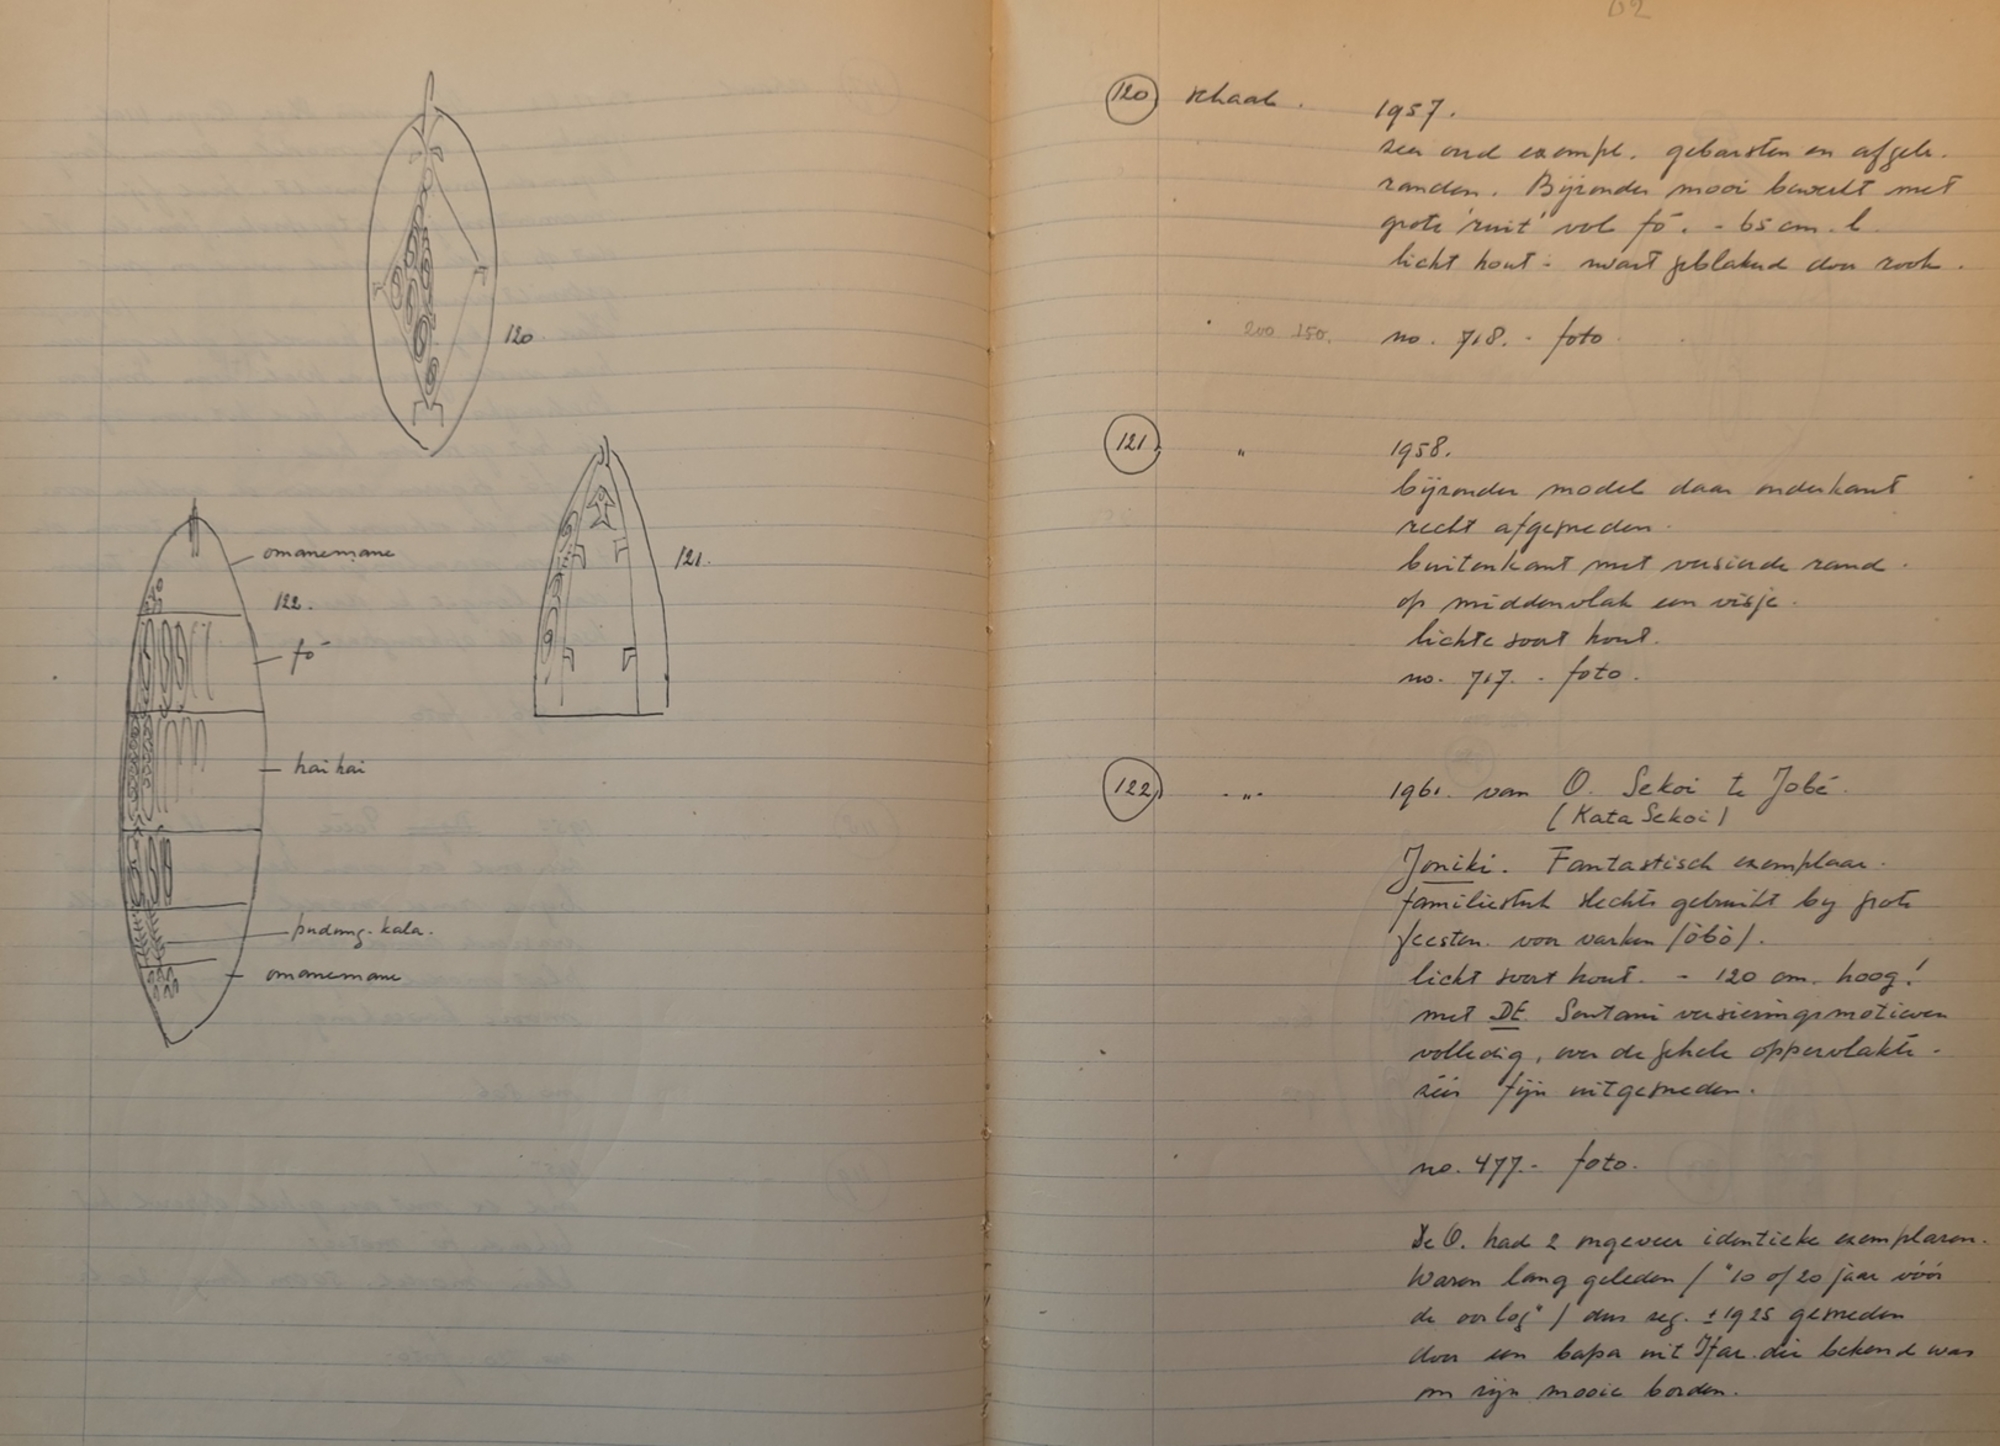 120
121.
omanemane
122.
fō
hai hai
pudung-kala.
omanemane
120 schaal.
1957.
zeer oud exempl. gebarsten en afgebr.
randen. Bijzonder mooi bewerkt met
grote 'ruit' vol fō. - 65 cm. l.
licht hout - zwart geblakerd door rook.
200 150. no. 718. - foto
121 "
1958.
bijzonder model daar onderkant
recht afgesneden.
buitenkant met versierde rand.
op middenvlak een visje.
lichte soort hout.
no. 717. - foto.
122 "
1961. van O. Sekoi te Jobé.
(Kata Sekoi)
Joniki. Fantastisch exemplaar.
familiestuk slechts gebruikt by grote
feesten. voor varken /ôbô/.
licht soort hout. - 120 cm. hoog!
met DE Sentani versieringsmotieven
volledig, over de gehele oppervlakte.
zéér fijn uitgesneden.
no. 477. - foto.
De O. had 2 ongeveer identieke exemplaren.
Waren lang geleden / "10 of 20 jaar vóór
de oorlog" / dus zeg. ±1925 gesneden
door een bapa uit Ifar die bekend was
om zijn mooie borden.